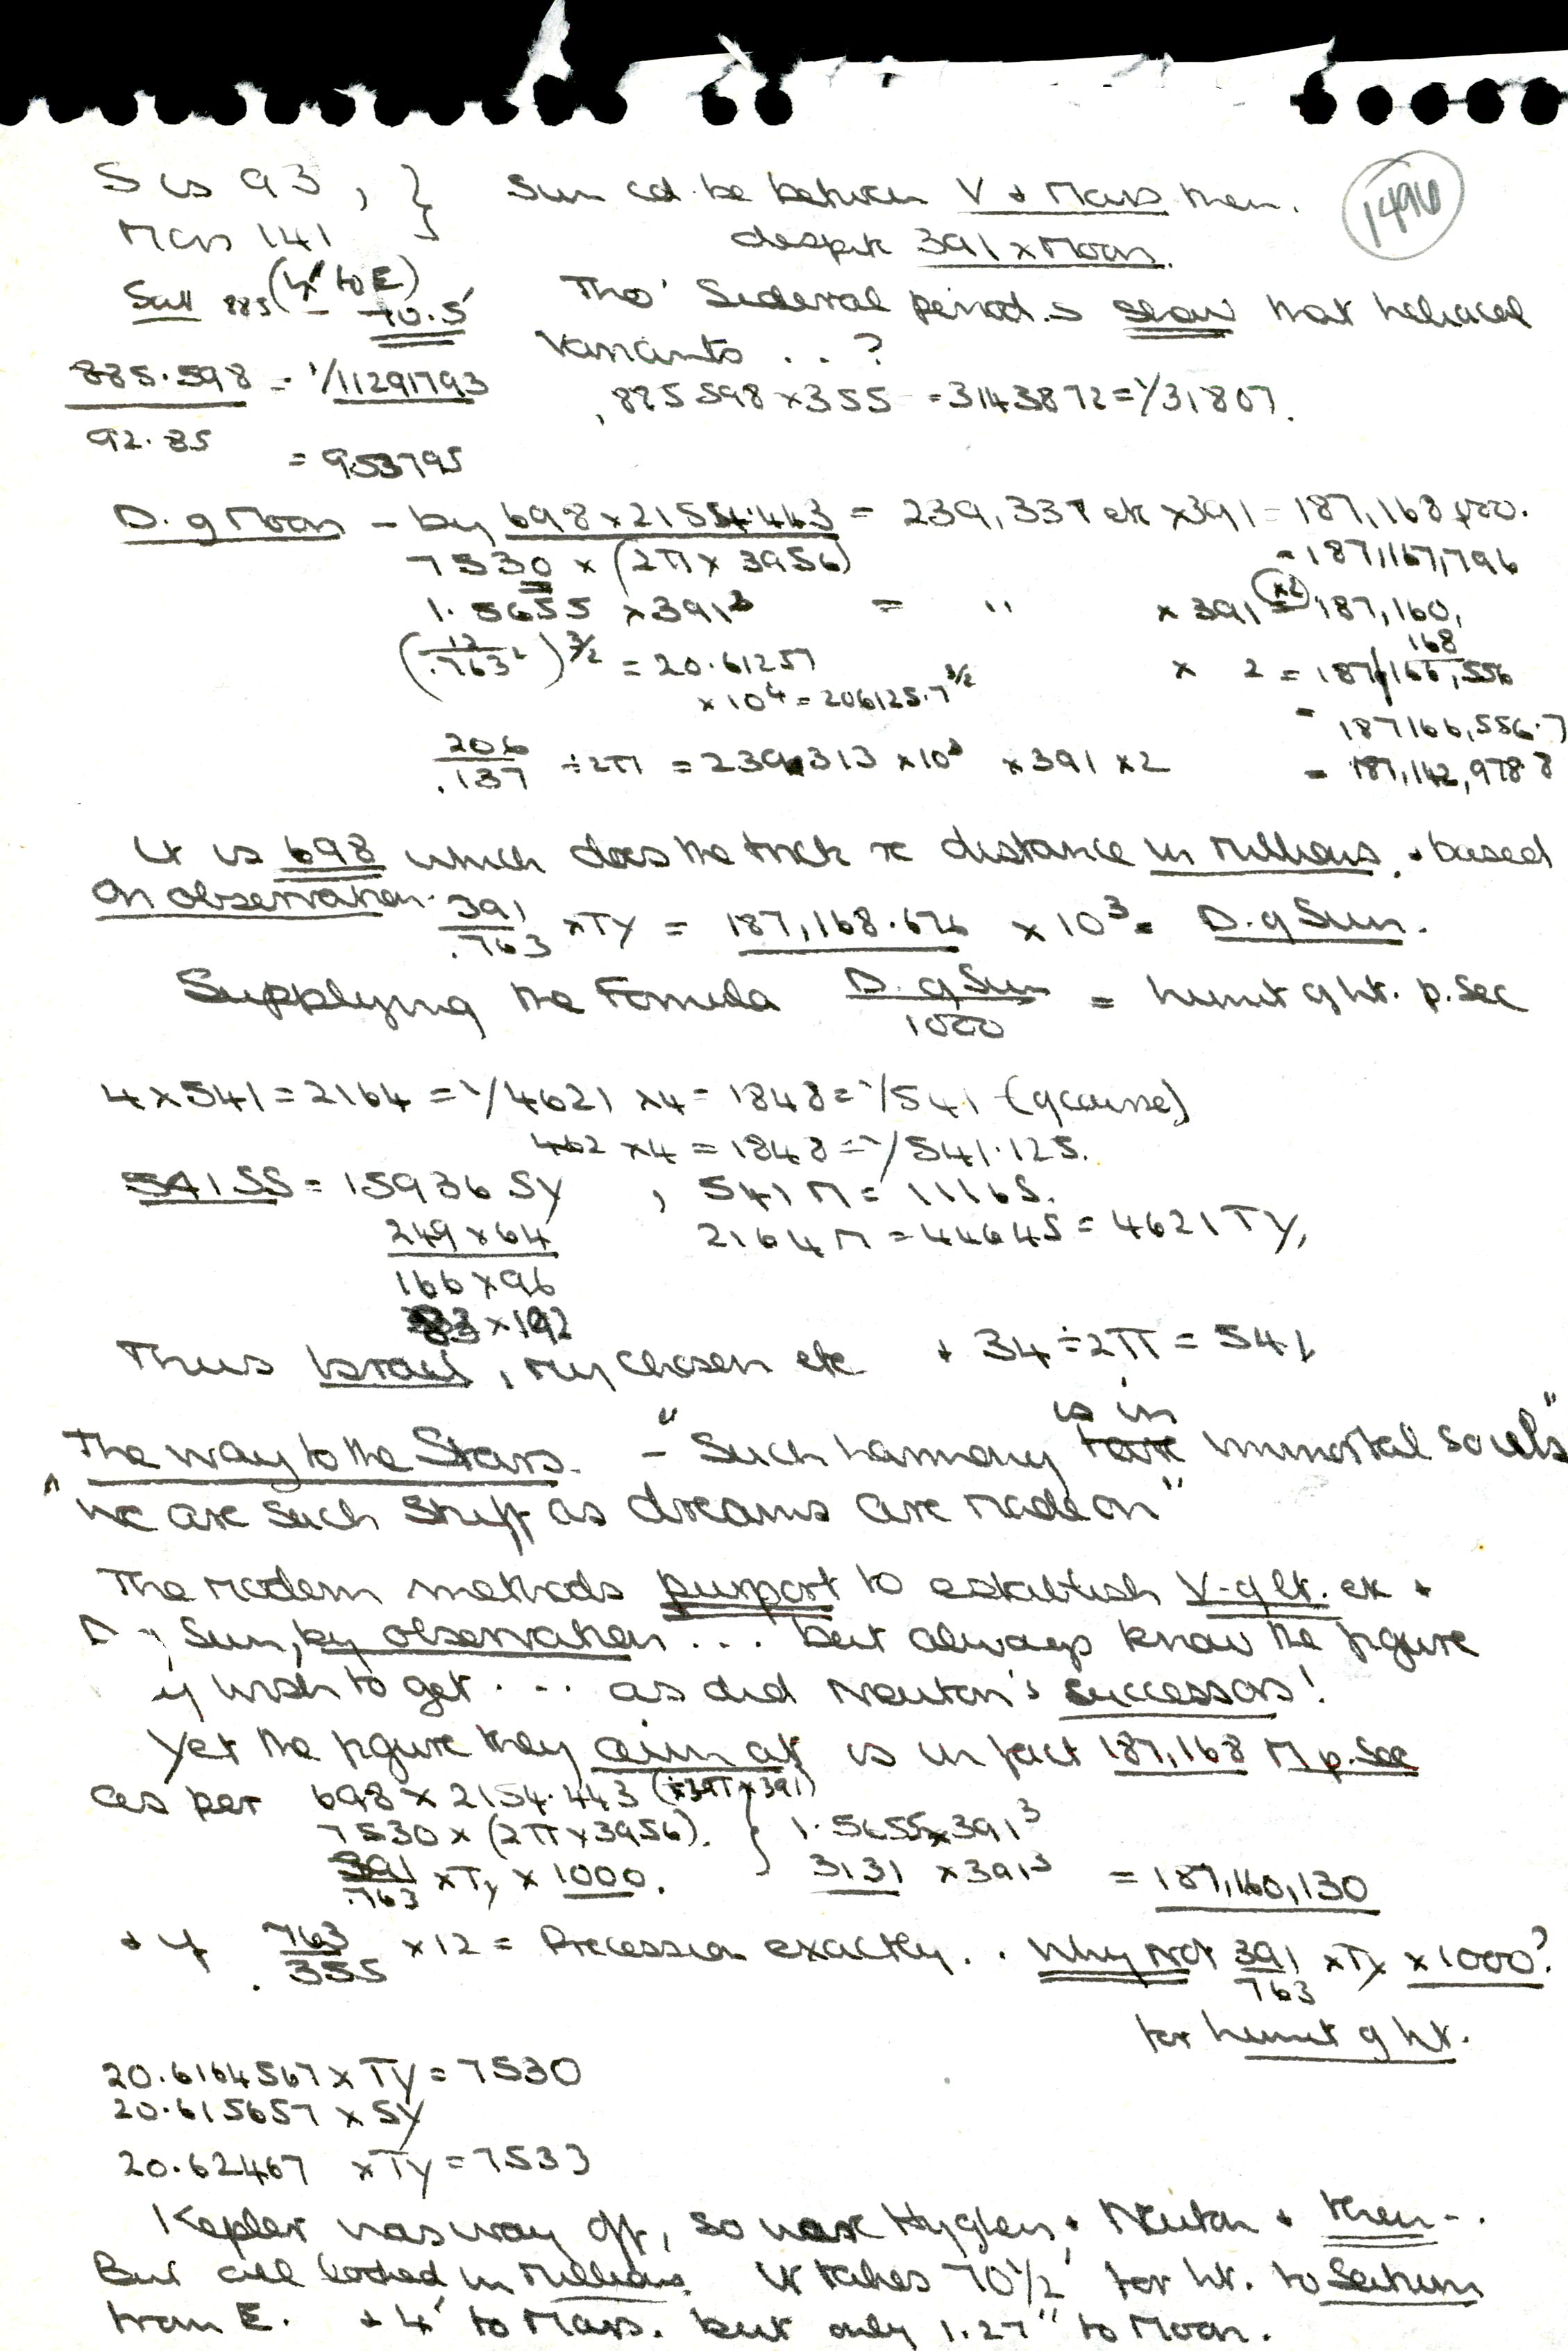 S is 93, } Sun cd. be between V + Mars then. 1496
Mars 141 despite 391 x Moon.
Sat 885 (lt to E) - 70.5' Tho' Sidereal periods show that heliacal
variants . . ?
885.598 = 1/11291793 , 885598 x 355 = 3143872 = 1/31807.
92.85
= 953795
D. of Moon - by 698 x 21554.443 = 239,337 etc x 391 = 187,168,
7530 x (2π x 3956) = 187,167,796
1.5655 x 391³ = " x 391 (x2) = 187,160,
(12/.763²)^3/2 = 20.61257 x 2 = 187,166,556
168
x 10⁴ = 206125.7^3/2 = 187166,556.7
206/.137 ÷ 2π = 239.313 x 10³ x 391 x 2 = 187,142,978.8
It is 698 which does the trick re distance in millions, + based
on observation. 391/.763 x TY = 187,168.676 x 10³ = D. of Sun.
Supplying the Formula D. of Sun/1000 = limit of lt. p. sec
4 x 541 = 2164 = 1/4621 x 4 = 1848 = 1/541 (of course)
462 x 4 = 1848 = 1/541.125.
541 SS = 15936 SY , 541 M = 11165.
249 x 64 2164 M = 44645 = 4621 TY,
166 x 96
83 x 192
Thus Israel, my chosen etc + 34 ÷ 2π = 541,
is in
The way to the Stars. - "Such harmony immortal souls"
"We are such stuff as dreams are made on"
The modern methods purport to establish V-of lt. etc +
D Sun, by observation . . . but always know the figure
wish to get . . . as did Newton's successors!
Yet the figure they aim at is in fact 187,168 M p. sec
as per 698 x 2154.443 (÷39π x 391)
7530 x (2π x 3956). } 1.5655 x 391³
391/.763 x Ty x 1000. 3131 x 391³ = 187,160,130
+ if .763/355 x 12 = Precession exactly . . Why not 391/763 x Ty x 1000?
for limit of lt.
20.6164567 x TY = 7530
20.615657 x SY
20.62467 x TY = 7533
Kepler was way off, so were Hygens + Newton + then - .
But all looked in millions. It takes 70½' for lt. to Saturn
from E. + 4' to Mars. but only 1.27" to Moon.